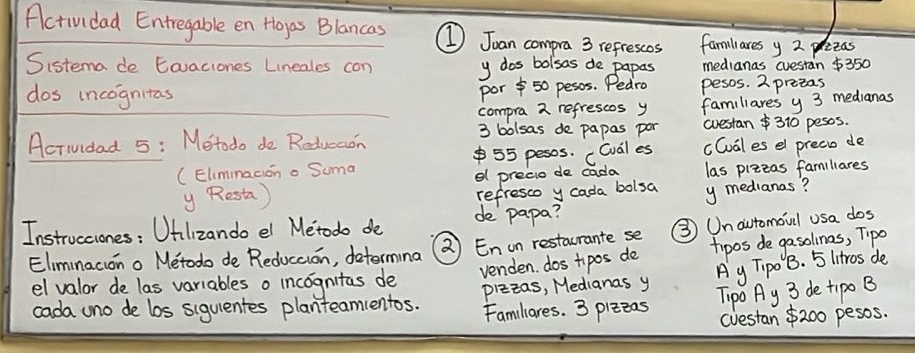 Actividad Entregable en Hojas Blancas
Sistema de Ecuaciones Lineales con
dos incógnitas
Actividad 5: Método de Reducción
(Eliminación o Suma
y Resta)
Instrucciones: Utilizando el Método de
Eliminación o Método de Reducción, determina
el valor de las variables o incógnitas de
cada uno de los siguientes planteamientos.
① Juan compra 3 refrescos
y dos bolsas de papas
por $50 pesos. Pedro
compra 2 refrescos y
3 bolsas de papas por
$55 pesos. ¿Cuál es
el precio de cada
refresco y cada bolsa
de papa?
② En un restaurante se
venden. dos tipos de
pizzas, Medianas y
Familiares. 3 pizzas
familiares y 2 pizzas
medianas cuestan $350
pesos. 2 pizzas
familiares y 3 medianas
cuestan $310 pesos.
¿Cuál es el precio de
las pizzas familiares
y medianas?
③ Un automóvil usa dos
tipos de gasolinas, Tipo
A y Tipo B. 5 litros de
Tipo A y 3 de tipo B
cuestan $200 pesos.